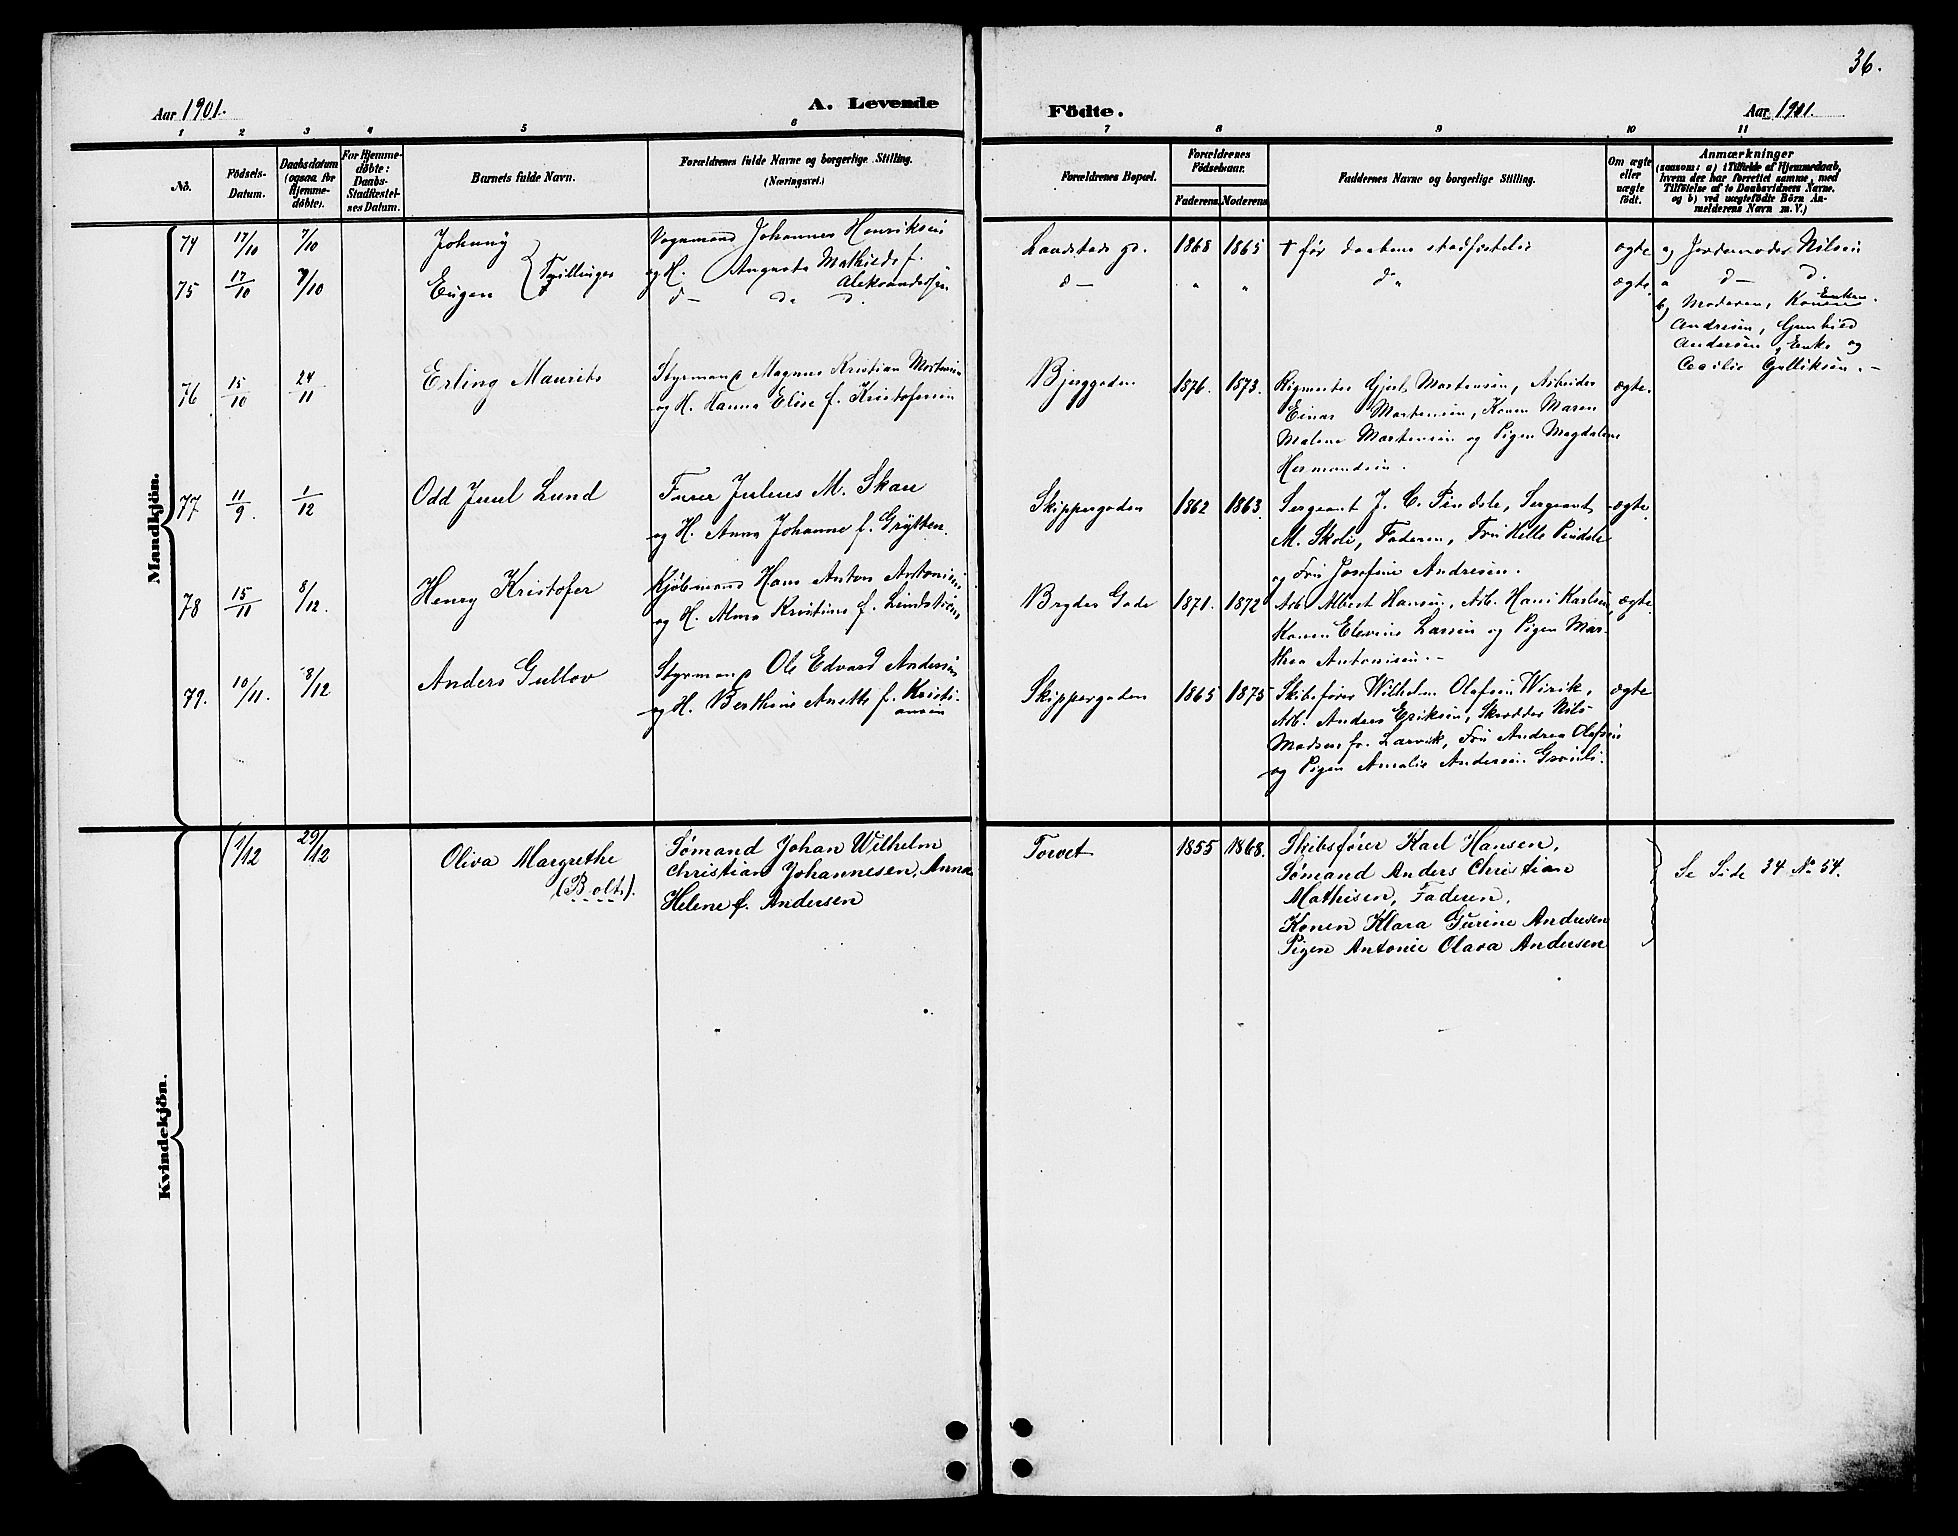 36.
Aar 1901.
A. Levende
Födte.
Aar 1901.
1 2 3 4 5 6 7 8 9 10 11
No.
Födsels-
Datum.
Daabsdatum
(ogsaa for
Hjemme-
døbte).
For Hjemme-
døbte:
Daabs-
Stadfæstel-
ses Datum.
Barnets fulde Navn.
Forældrenes fulde Navne og borgerlige Stilling.
(Næringsvei.)
Forældrenes Bopæl.
Forældrenes
Födselsaar.
Faderens. Moderens.
Faddernes Navne og borgerlige Stilling.
Om ægte
eller
uægte
født.
Anmærkninger
(saasom: a) i Tilfælde af Hjemmedaab,
hvem der har forrettet samme, med
Tilföielse af to Daabsvidners Navne.
og b) ved uægtefödte Börn An-
melderens Navn m. V.)
Mandkjön.
74 17/10 7/10 Johnny
Vognmand Johannes Henriksen
og H. Augusta Mathilde f.
Aleksandersen
Landstads g. 1868 1865 + før daabens stadfæstelse ægte a) Jordemoder Nilsen
75 17/10 7/10 Eugen Tvillinger
d — do d.
d — " " d " ægte. a d — d.
b) Moderen, Konen Enken
Andresen, Gunhild
Andersen, Enke og
Cecilie Gulliksen. —
76 15/10 24/11 Erling Maurits
Styrmand Magnus Kristian Mortensen
og H. Hanna Elise f. Kristofersen
Bjerggaden 1876. 1873.
Rigmester Gjert Mortensen, Arbeider
Einar Mortensen, Konen Maren
Malene Mortensen og Pigen Magdalene
Hermandsen.
ægte.
77 11/9. 1/12 Odd Juul Lund
Furer Julius M. Skau
og H. Anna Johanne f. Grytten.
Skippergaden 1862 1863.
Sergeant J. C. Pindsle, Sergeant
M. Skoli, Faderen, Fru Helle Pindsle
og Fru Josefine Andresen.
ægte.
78 15/11 8/12. Henry Kristofer
Kjøbmand Hans Anton Antonisen
og H. Alma Kristine f. Lindstrøm,
Brydes Gade 1871. 1872
Arb. Albert Hansen, Arb. Hans Karlsen,
Konen Elevine Larsen og Pigen Mar-
thea Antonisen. —
ægte.
79. 10/11. 8/12 Anders Gullov
Styrmand Ole Edvard Andersen
og H. Berthine Anette f. Kristi-
ansen
Skippergaden 1865 1875
Skibsfører Wilhelm Olafsen Wirik,
Arb. Anders Eriksen, Skrædder Nils
Madsen fr. Larvik, Fru Andrea Olafsen
og Pigen Amalie Andersen Grønli.
ægte
Kvindekjön.
(1/12 29/12 Oliva Margrethe
(Bolt).
Sømand Johan Wilhelm
Christian Johannesen, Anna
Helene f. Andersen
Torvet 1855 1868.
Skibsfører Karl Hansen,
Sømand Anders Christian
Mathisen, Faderen,
Konen Klara Gurine Andresen
Pigen Antonie Olava Andersen
Se Side 34 No 54.